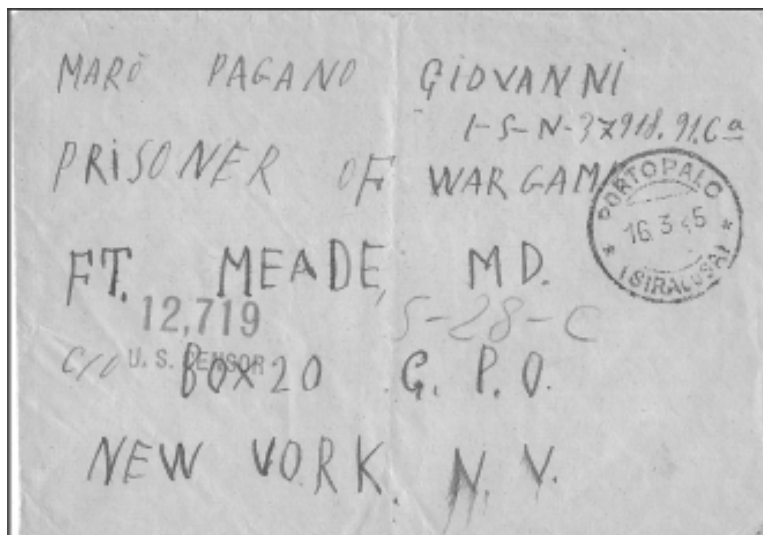 MARÒ PAGANO GIOVANNI
I-S-N-37918.91.Cª
PRISONER OF WAR GAMP
PORTOPALO
16 3 45
* (SIRACUSA) *
FT. MEADE, MD.
12,719
S-28-C
U. S. CENSOR
C/O BOX 20 G. P. O.
NEW VORK. N. V.